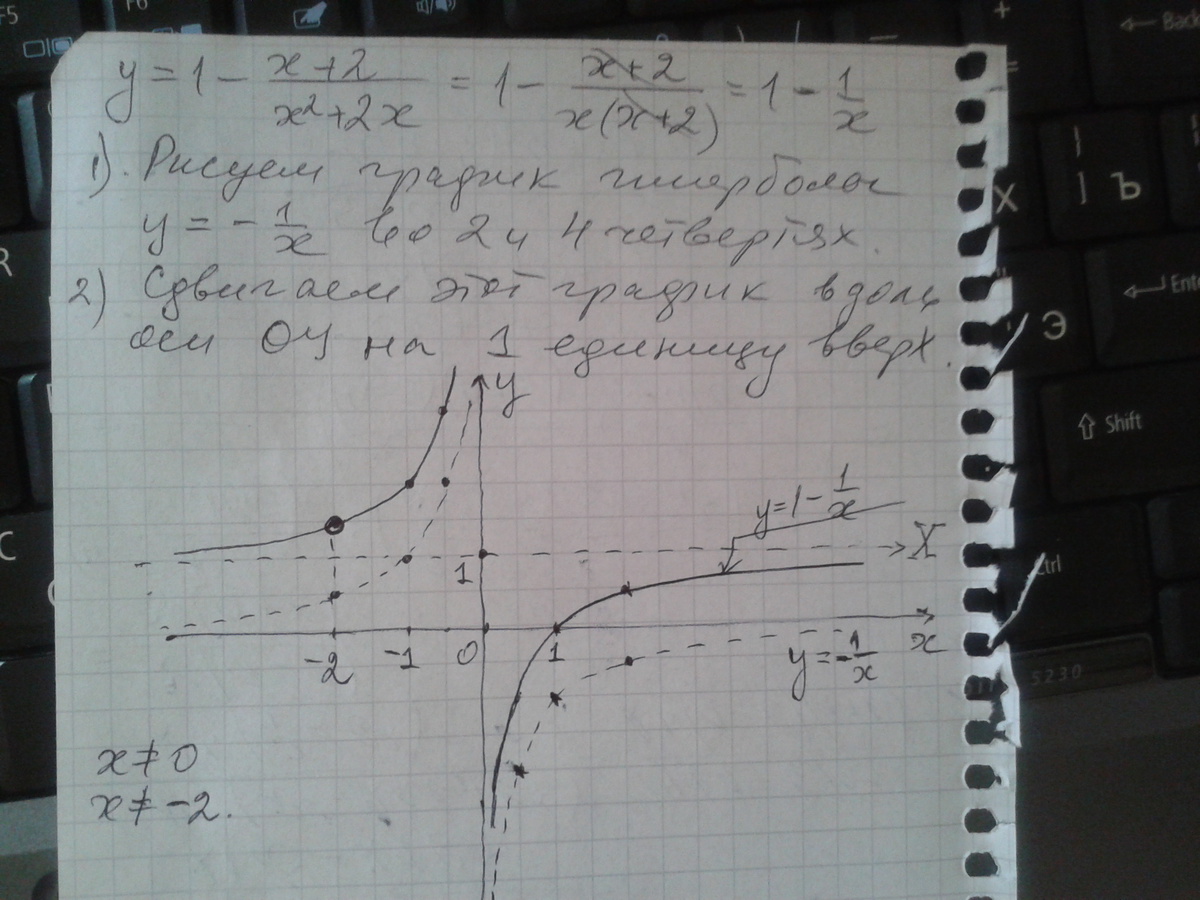 y = 1 - (x+2)/(x²+2x) = 1 - (x+2)/(x(x+2)) = 1 - 1/x
1). Рисуем график гиперболы
y = -1/x во 2 и 4 четвертях.
2) Сдвигаем этот график вдоль
оси ОУ на 1 единицу вверх.
y
y=1-1/x
X
1
-2 -1 0 1 x
y=-1/x
x ≠ 0
x ≠ -2.
F5
F6
+
=
Back
R
Х
Ъ
Э
Enter
Shift
С
Ctrl
5230